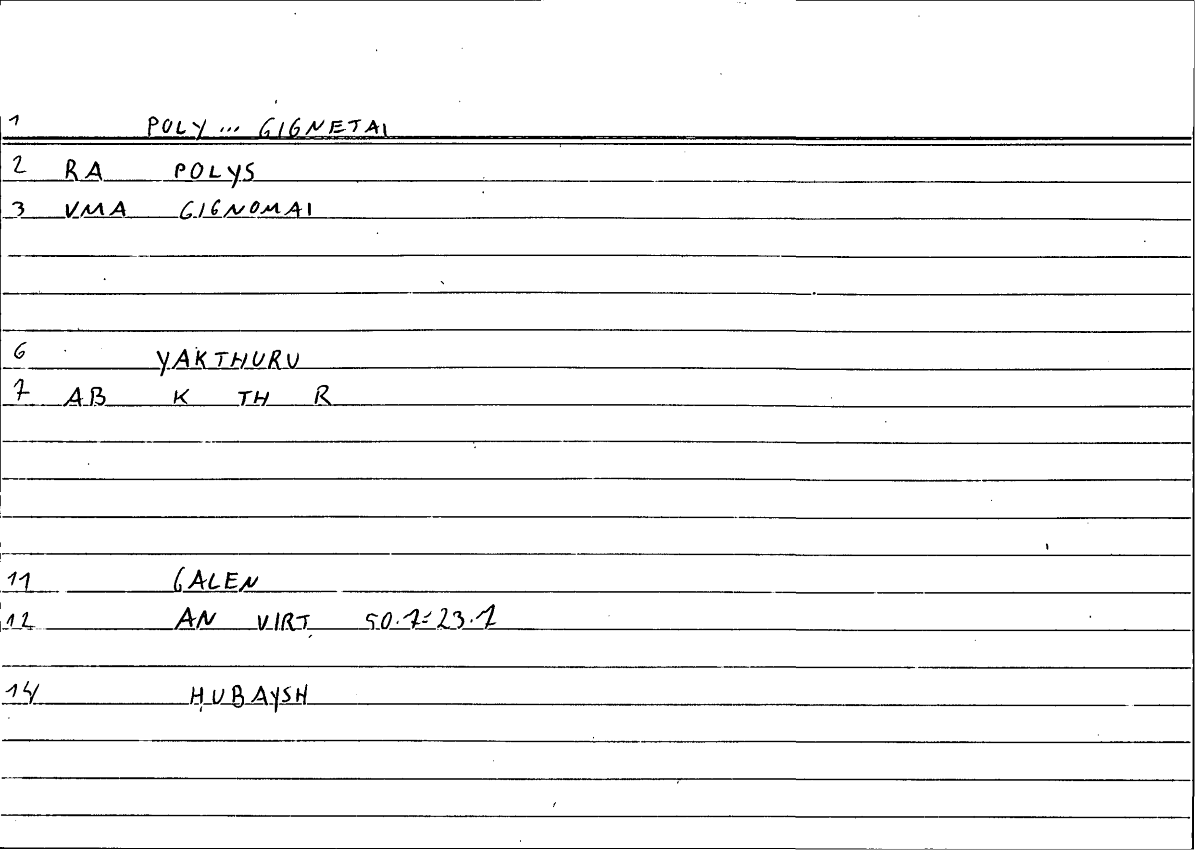 1 POLY ... GIGNETAI
2 RA POLYS
3 VMA GIGNOMAI
6 YAKTHURU
7 AB K TH R
11 GALEN
12 AN VIRT 50.7=23.7
14 ḤUBAYSH